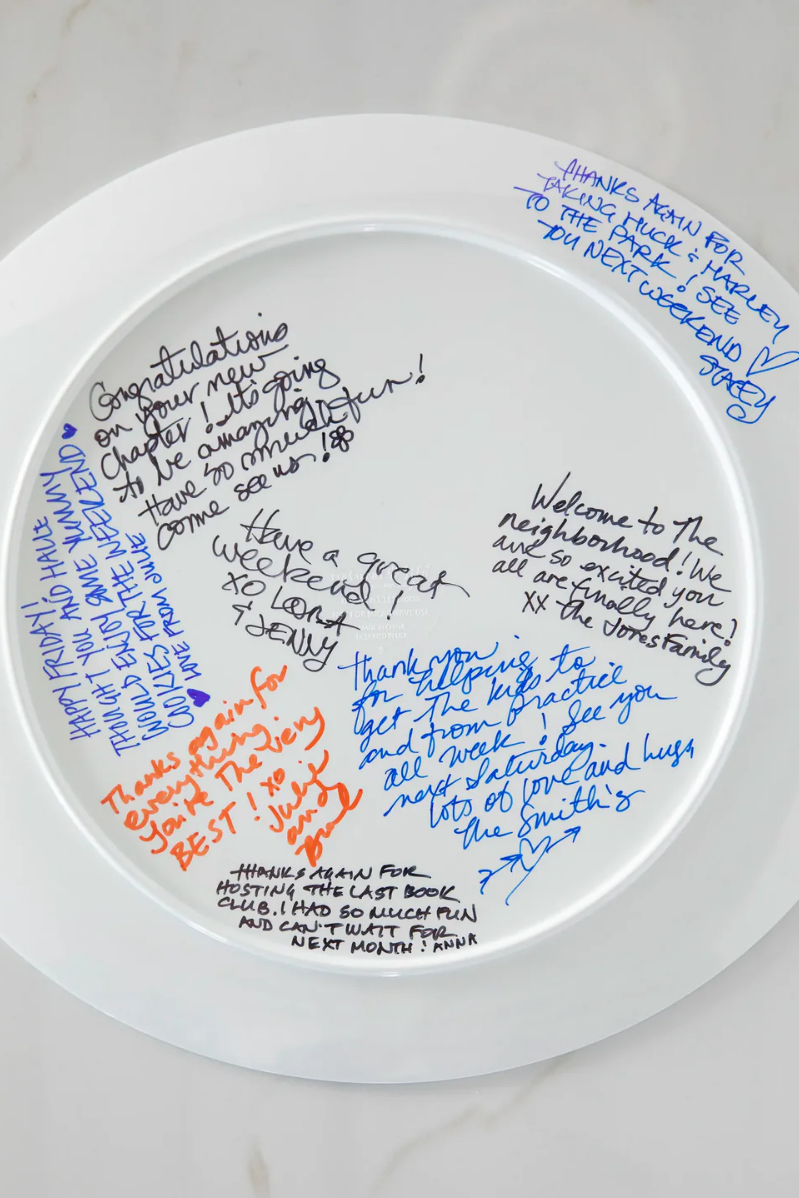 THANKS AGAIN FOR
TAKING HUCK & HARLEY
TO THE PARK! SEE
YOU NEXT WEEKEND ♡
STACEY
Congratulations
on your new
chapter! Its going
to be amazing
Have so much fun!
come see us!
HAPPY FRIDAY!
THOUGHT YOU AND HALLE
WOULD ENJOY SOME YUMMY
COOKIES FOR THE WEEKEND ♥
♥ LOVE FROM JULIE
Have a great
weekend!
XO LORA
& JENNY
Welcome to The
neighborhood! We
are so excited you
all are finally here!
XX The Jones Family
Thank you
for helping to
get The kids to
and from practice
all week! See you
next Saturday.
lots of love and hugs
The Smith's
Thanks again for
everything.
You're The very
BEST! XO
Julie
and
THANKS AGAIN FOR
HOSTING THE LAST BOOK
CLUB. I HAD SO MUCH FUN
AND CAN'T WAIT FOR
NEXT MONTH! ANNA